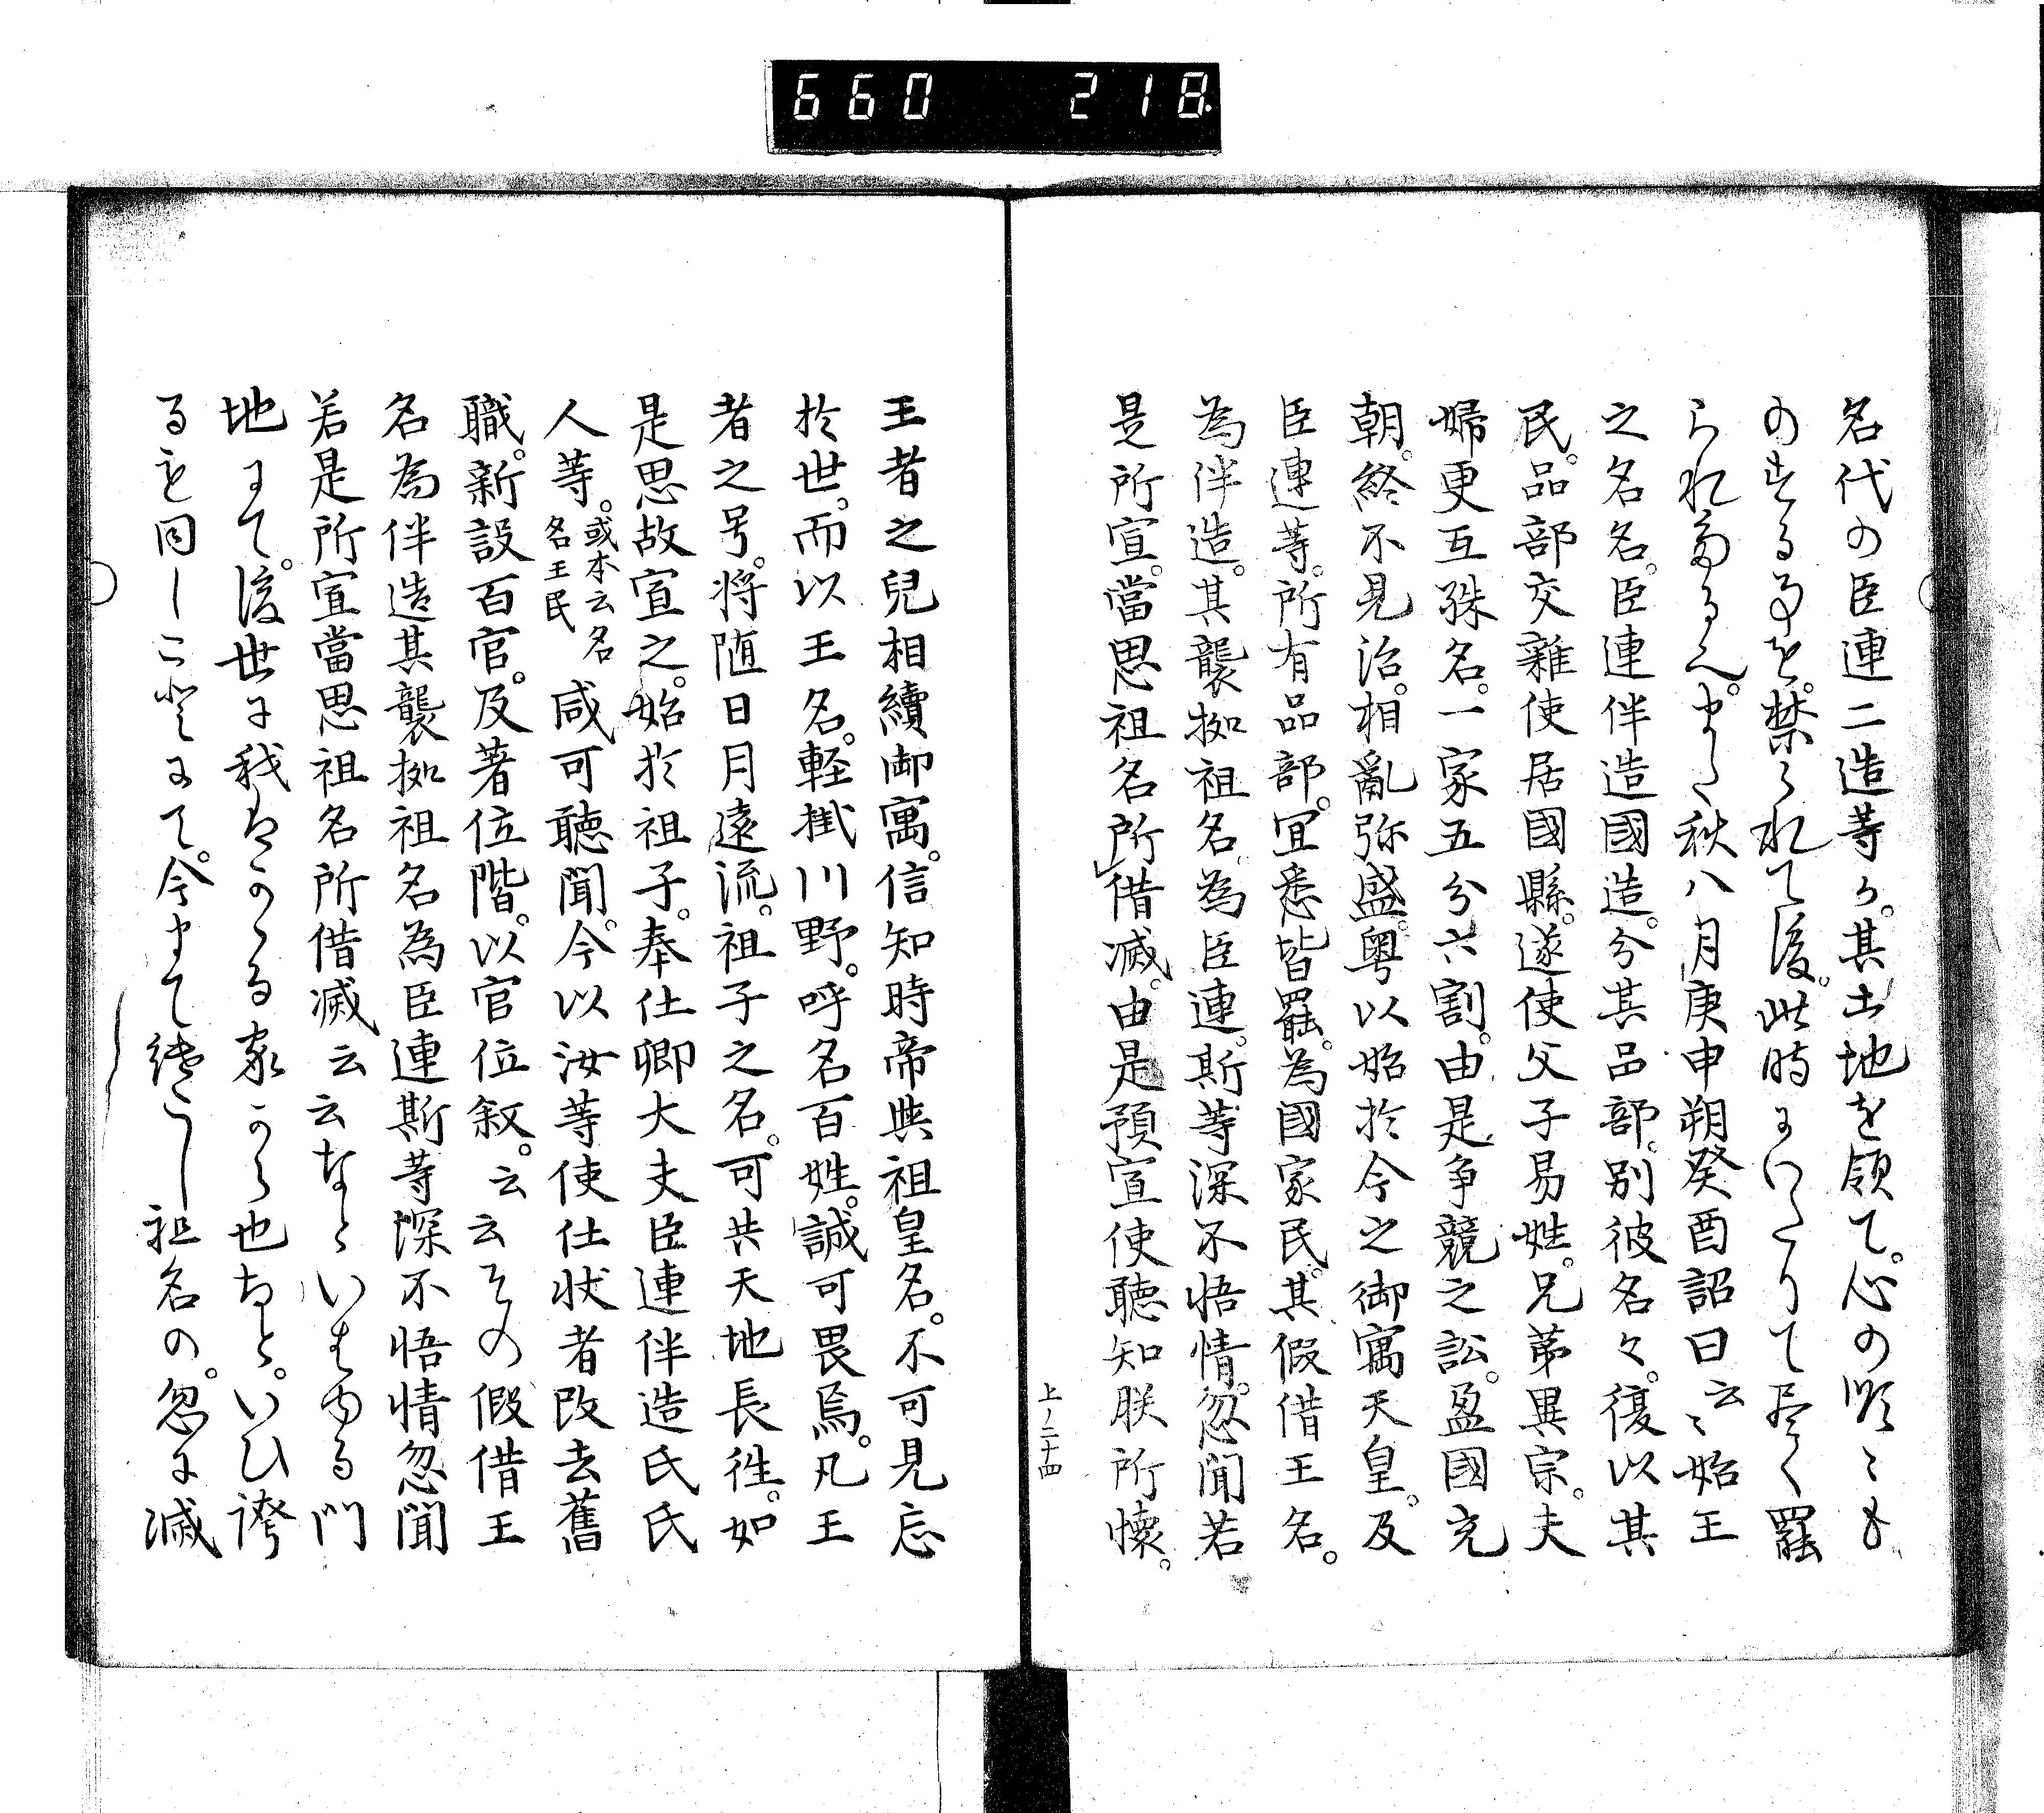 660 218
名代の臣連二造等か。其土地を領て。心の随ゝも
のせる事を。禁られて後。此時にいたりて尽く罷
られたるへ。また秋八月庚申朔癸酉詔曰云ゝ始王
之名名。臣連伴造國造。分其品部。別彼名々。復以其
民。品部交雜使居國縣。遂使父子易姓。兄苐異宗。夫
婦更互殊名。一家五分六割。由是争競之訟。盈國充
朝。終不見治。相亂弥盛。粤以始於今之御寓天皇。及
臣連等。所有品部。宜悉皆罷。為國家民。其假借王名。
為伴造。其襲拠祖名。為臣連。斯等深不悟情。忽聞若
是所宣。當思祖名所借滅。由是預宣使聽知朕所懐。
上ノ二十四
王者之兒相續御寓。信知時帝與祖皇名。不可見忘
於世。而以王名。軽掛川野。呼名百姓。誠可畏焉。凡王
者之号。将随日月遠流。祖子之名。可共天地長往。如
是思故宣之。始於祖子。奉仕卿大夫臣連伴造氏氏
人等。或本云名名王民 咸可聴聞。今以汝等使仕状者改去舊
職。新設百官。及著位階。以官位叙。云云その假借王
名為伴造其襲拠祖名為臣連斯等深不悟情忽聞
若是所宣當思祖名所借滅云云なといはゆる門
地にて。後世に我はかゝる家から也なと。いひ誇
るも同しことにて。今まて続こし祖名の。忽に滅